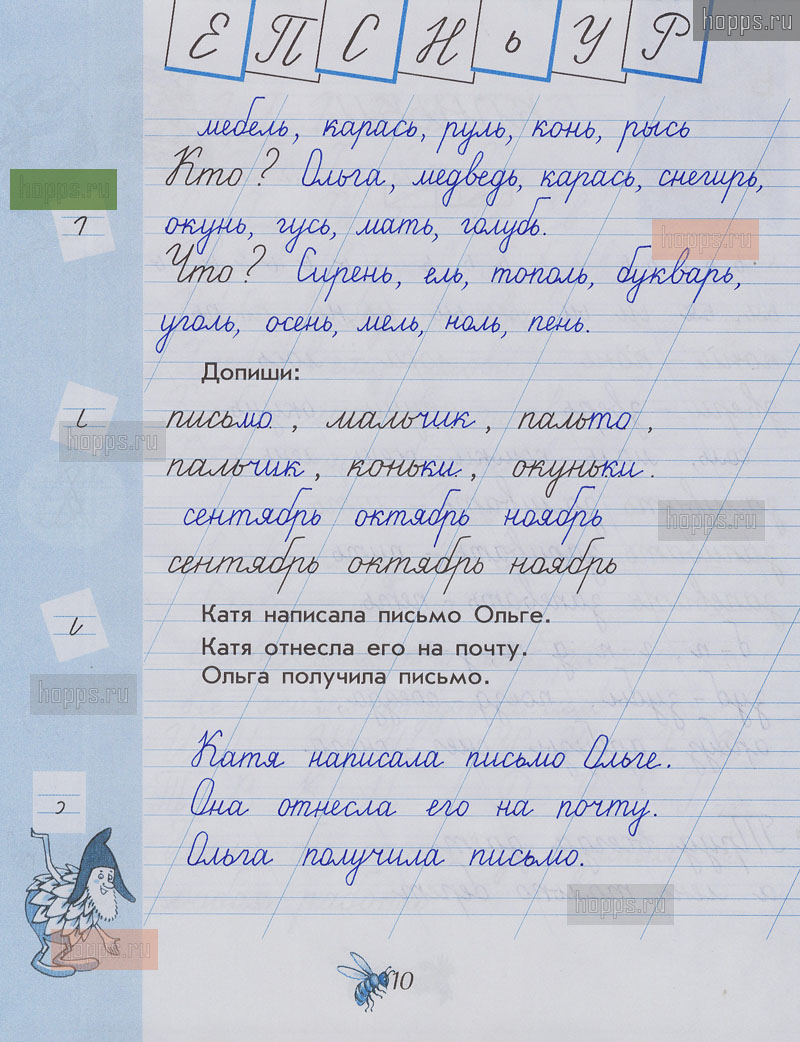 Е П С Н ь У Р
hopps.ru
мебель, карась, руль, конь, рысь
Кто? Ольга, медведь, карась, снегирь,
hopps.ru
окунь, гусь, мать, голубь.
hopps.ru
Что? Сирень, ель, тополь, букварь,
уголь, осень, мель, ноль, пень.
Допиши:
письмо, мальчик, пальто,
hopps.ru
пальчик, коньки, окуньки.
сентябрь октябрь ноябрь
hopps.ru
сентябрь октябрь ноябрь
Катя написала письмо Ольге.
Катя отнесла его на почту.
Ольга получила письмо.
hopps.ru
Катя написала письмо Ольге.
Она отнесла его на почту.
Ольга получила письмо.
hopps.ru
hopps.ru
10